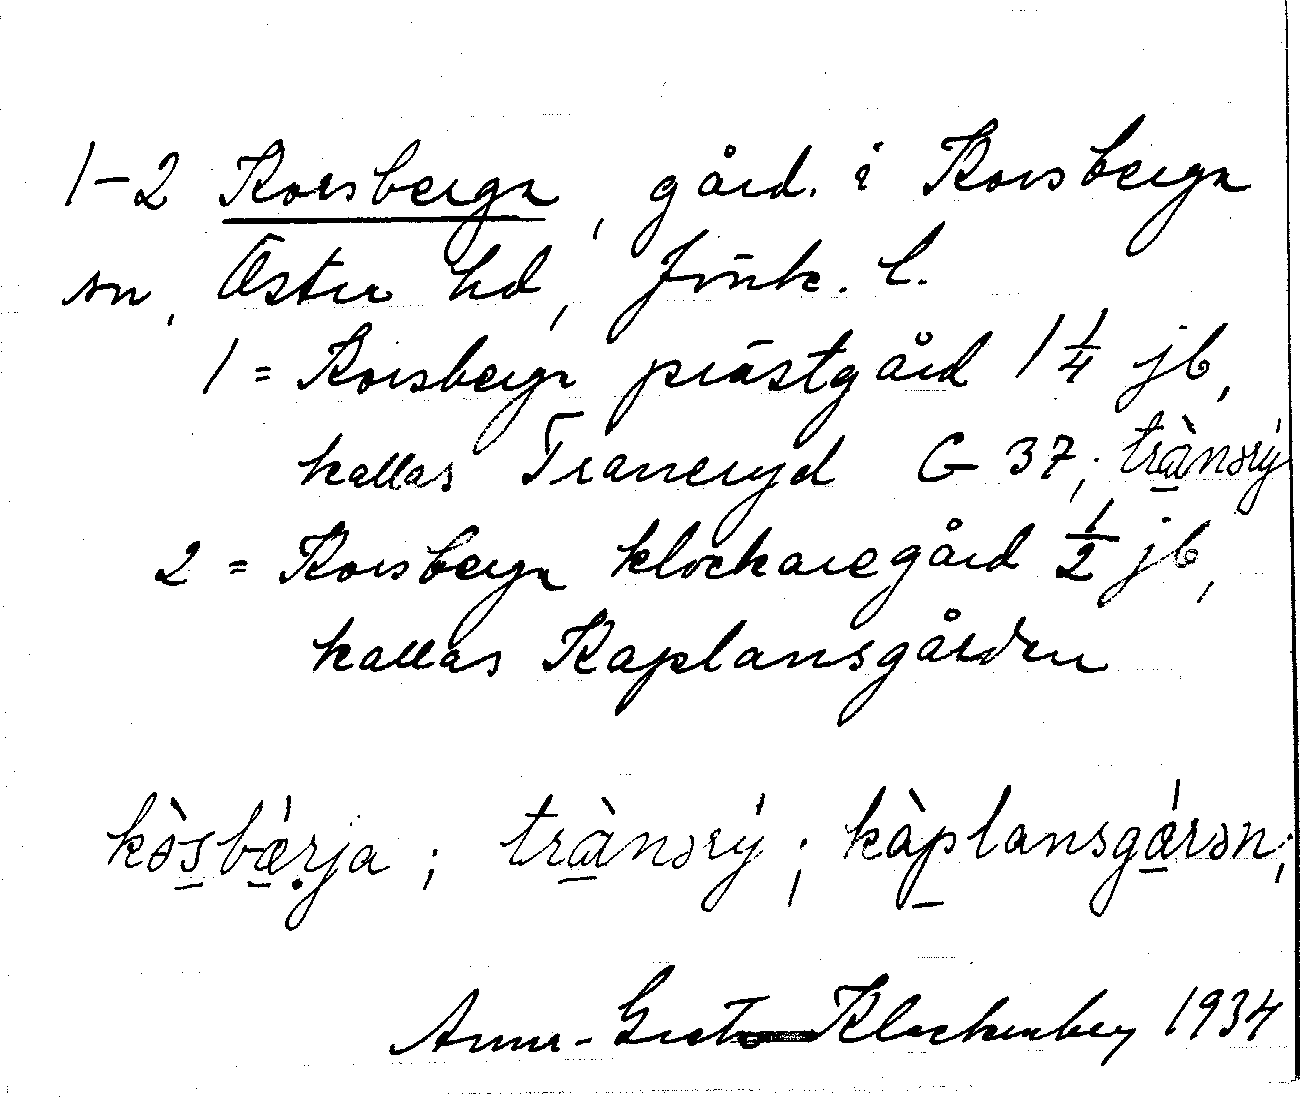 1-2 Korsberga, gård. i Korsberga
sn, Öster hd, Jönk. l.
1 = Korsberga prästgård 1 1/4 jb,
kallas Traneryd G 37; trànərý
2 = Korsberga klockaregård 1/2 jb,
kallas Kaplansgården
kòsbǽrja; trànərý; kàplansgárən;
Anna-Greta Klockenberg 1934